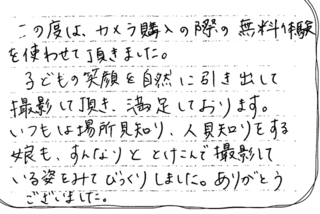 この度は、カメラ購入の際の無料体験
を使わせて頂きました。
子どもの笑顔を自然に引き出して
撮影して頂き、満足しております。
いつもは場所見知り、人見知りをする
娘も、すんなりととけこんで撮影して
いる姿をみてびっくりしました。ありがとう
ございました。